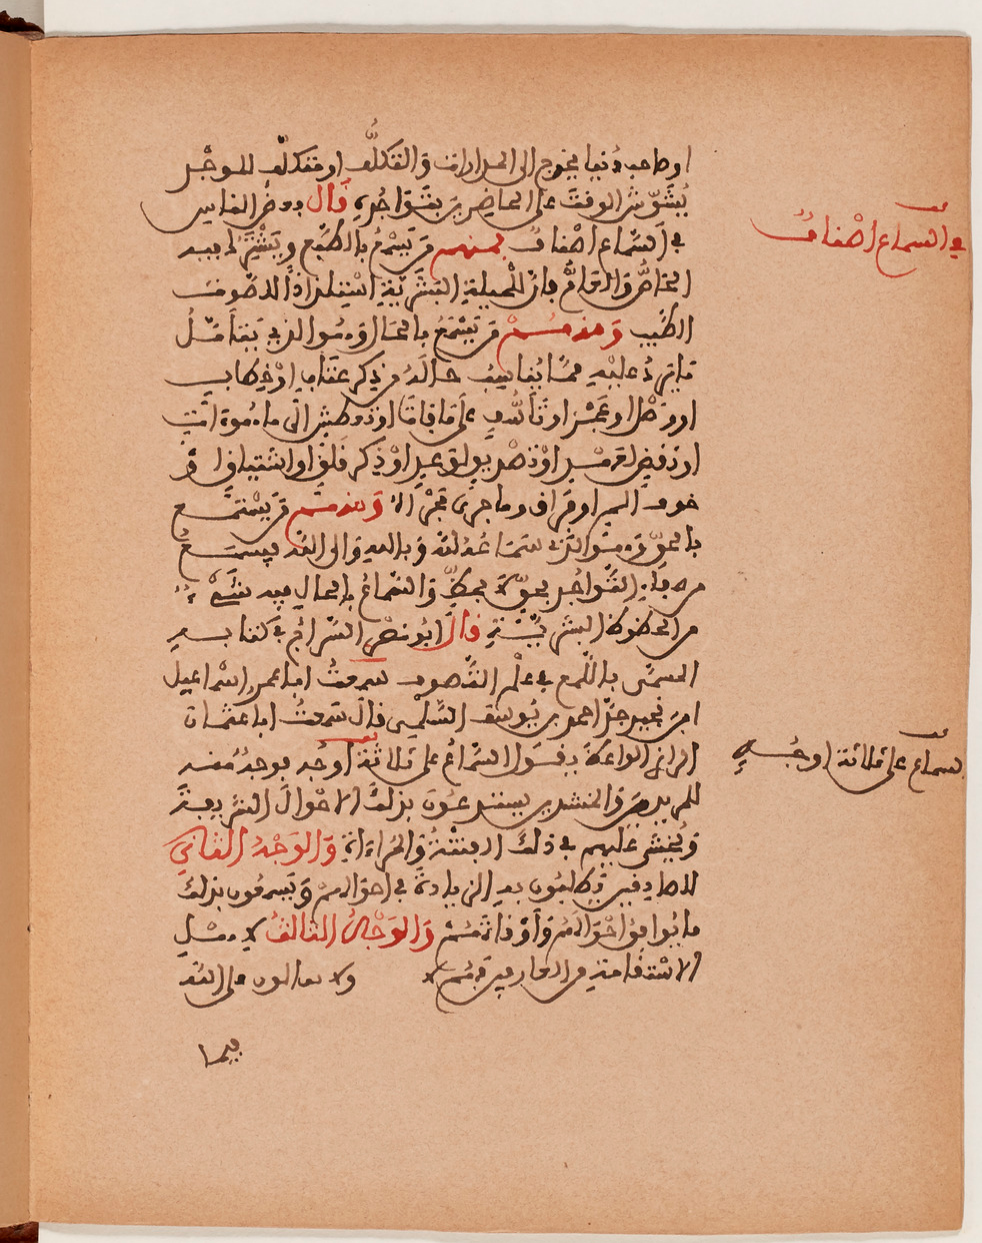 او صاحب دُنيا يخرج الى المداراة وَالتكلُّف او متكلّف للوجد
يُشَوّش الوقت على الحاضرين بتَوَاجُدِهِ قَال بعض الناس
في السَّماع اصْناف فمنهم مَن يَسْمعُ بالطَّبع ويَشْترك فيه
الخاصُّ وَالعامُّ فان الجبلة البَشَرِيَّةِ اسْتِلذاذاً للصّوت
الطَّيب وَمنهمْ مَن يَسْمَعُ بالحَال وَهُو الذي يَتأمّلُ
ما يَرِدُ عليْهِ ممّا يُناسِبُ حالَهُ من ذِكر عتَاب اوْ خِطاب
او وصْل او هَجْر او تأسُّف على ما فات او تعطش الى ما هُو آت
او نقض لعهد اوْ تصْديق لوعد اوْ ذكر قَلق او اشتياق اوْ
خوف البين او فراق وما جرى مَجْراه وَمنهم مَن يسْتمع
بالحقّ وَهُو الذي سَماعُهُ للّه وَبالله وَالى الله فيسمَعُ
من باب التَّواجُد بحقّ لا بحظّ وَالسّماعُ بالحال فيه شَيْءٌ
من الحظوظ البشرِيّة قال ابُو نصْر السّراج في كتابه
المسمّى باللّمع في علْم التَّصوف سمعتُ ابا عمرو اسْماعيل
ابن نُجيد جدّ احمد بن يُوسف السُّلمي قال سَمعتُ ابا عثمان
الرازي الواعظ يقول السَّماعُ على ثلاثة اوْجُه فوجهٌ منه
للمريدين وَالمبتدين يستدعون بذلك الاحْوالَ الشريفةَ
وَيُخشى عليهم في ذلك الفتنةُ وَالمراءاة وَالوَجْهُ الثاني
للصادقين يَطلبُون به الزيادةَ في احوالهمْ وَيَسمعُون بذلكَ
ما يُوافقُ احْوَالهُمْ وَأوْقاتهُمْ وَالوَجْهُ الثالثُ لاهْل
الاسْتقامة من العارفين فهُم لا ولا
فيما
في السماع اصْنافٌ
السماع على ثلاثة اوجُه